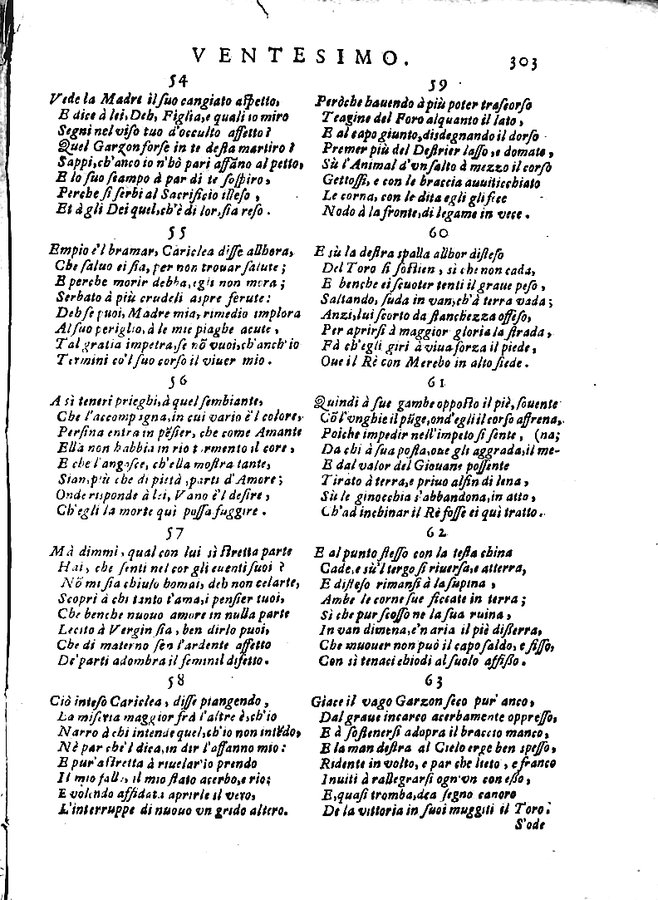 VENTESIMO. 303
54
Vede la Madre il suo cangiato aspetto,
E dice à lei, Deh, Figlia, e quali io miro
Segni nel viso tuo d'occulto affetto?
Quel Garzon forse in te desta martiro?
Sappi, ch'anco io n'hò pari affãno al petto,
E lo suo scampo à par di te sospiro,
Perche si serbi al Sacrificio illeso,
Et à gli Dei quel, ch'è di lor, sia reso.
55
Empio è'l bramar, Cariclea disse allhora,
Che saluo ei sia, per non trouar salute;
E perche morir debba, egli non mora;
Serbato à più crudeli aspre ferute:
Deh se puoi, Madre mia, rimedio implora
Al suo periglio, à le mie piaghe acute,
Tal gratia impetra, se nõ vuoi, ch'anch'io
Termini co'l suo corso il viuer mio.
56
A sì teneri prieghi, à quel sembiante,
Che l'accompagna, in cui vario è'l colore,
Persina entra in pẽsier, che come Amante
Ella non habbia in rio tormento il core,
E che l'angosce, ch'ella mostra tante,
Sian, più che di pietà, parti d'Amore;
Onde risponde à lei, Vano è'l desire,
Ch'egli la morte quì possa fuggire.
57
Mà dimmi, qual con lui sì stretta parte
Hai, che senti nel cor gli euenti suoi?
Nõ mi sia chiuso homai, deh non celarte,
Scopri à chi tanto t'ama, i pensier tuoi,
Che benche nuouo amore in nulla parte
Lecito à Vergin sia, ben dirlo puoi,
Che di materno sen l'ardente affetto
De' parti adombra il feminil difetto.
58
Ciò inteso Cariclea, disse piangendo,
La miseria maggior frà l'altre è, ch'io
Narro à chi intende quel, ch'io non intẽdo,
Nè par che'l dica, in dir l'affanno mio:
E pur astretta à riuelar io prendo
Il mio fallo, il mio stato acerbo, e rio;
E volendo affidata aprirle il vero,
L'interruppe di nuouo vn grido altero.
59
Peròche hauendo à più poter trascorso
Teagine del Foro alquanto il lato,
E al capo giunto, disdegnando il dorso
Premer più del Destrier lasso, e domato,
Sù l'Animal d'vn salto à mezzo il corso
Gettossi, e con le braccia auuiticchiato
Le corna, con le dita egli gli fece
Nodo à la fronte, di legame in vece.
60
E sù la destra spalla allhor disteso
Del Toro si sostien, sì che non cada,
E benche ei scuoter tenti il graue peso,
Saltando, suda in van, ch'à terra vada;
Anzi, lui scorto da stanchezza offeso,
Per aprirsi à maggior gloria la strada,
Fà ch'egli giri à viua forza il piede,
Oue il Rè con Merebo in alto siede.
61
Quindi à sue gambe opposto il piè, souente
Cõ l'vnghie il pũge, ond'egli il corso affrena,
Poiche impedir nell'impeto si sente, (na;
Da chi à sua posta, oue gli aggrada, il me-
E dal valor del Giouane possente
Tirato à terra, e priuo alfin di lena,
Sù le ginocchia s'abbandona, in atto,
Ch'ad inchinar il Rè fosse ei quì tratto.
62
E al punto stesso con la testa china
Cade, e sù'l tergo si riuersa, e atterra,
E disteso rimansi à la supina,
Ambe le corne sue ficcate in terra;
Sì che pur scosso ne la sua ruina,
In van dimena, e'n aria il piè disserra,
Che muouer non può il capo saldo, e fisso,
Con sì tenaci chiodi al suolo affisso.
63
Giace il vago Garzon seco pur'anco,
Dal graue incarco acerbamente oppresso,
E à sostenersi adopra il braccio manco,
E la man destra al Cielo erge ben spesso,
Ridente in volto, e par che lieto, e franco
Inuiti à rallegrarsi ogn'vn con esso,
E, quasi tromba, dea segno canoro
De la vittoria in suoi muggiti il Toro.
S'ode